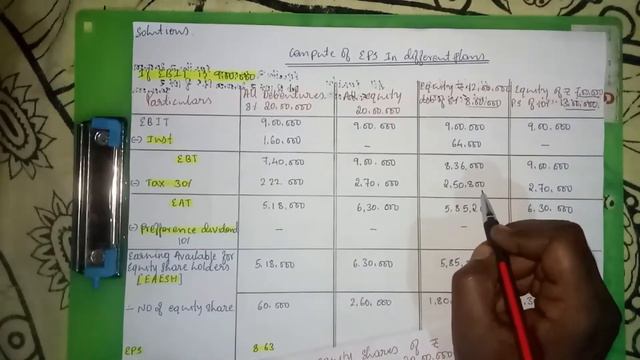 Solutions.
Compute of EPS In different plans
If EBIT is 9,00,000
Particulars All Debentures 8% 20,00,000 All equity 20,00,000 Equity ₹ 12,00,000 8,00,000 Equity of ₹ 7,00,000 PS of 10% 13,00,000
EBIT 9,00,000 9,00,000 9,00,000 9,00,000
(-) Inst 1,60,000 – 64,000 –
EBT 7,40,000 9,00,000 8,36,000 9,00,000
(-) Tax 30% 2,22,000 2,70,000 2,50,800 2,70,000
EAT 5,18,000 6,30,000 5,85,2 6,30,000
(-) Prefference dividend 10% – – –
Earning Available for Equity share holders [EAESH] 5,18,000 6,30,000 5,85,
÷ NO of equity share 60,000 2,60,000 1,80,
EPS 8.63
equity shares of ₹
20,00,000